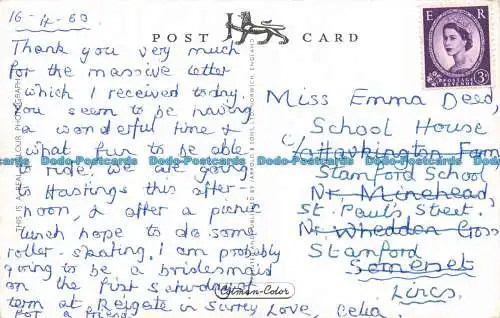 16-4-60
POST CARD
E R
POSTAGE REVENUE
3D
Thank you very much
for the massive letter
which I received today.
You seem to be having
a wonderful time &
what fun to be able
to ride. We are going
to Hastings this after-
noon, & after a picnic
lunch hope to do some
roller-skating. I am probably
going to be a bridesmaid
on the first Saturday of
term at Reigate in Surrey
for a friend.
Love, Celia.
Miss Emma Deed
School House
c/o Hawkington Farm
Stamford School
Nr. Minehead,
St. Pauls Street.
Nr. Whedden Cross
Stamford
Somerset
Lincs.
THIS IS A REAL COLOUR PHOTOGRAPH
JARROLD & SONS LTD. NORWICH, ENGLAND
Cotman-Color
Dodo-Postcards Dodo-Postcards Dodo-Postcards Dodo-Postcards Dodo-Postcards